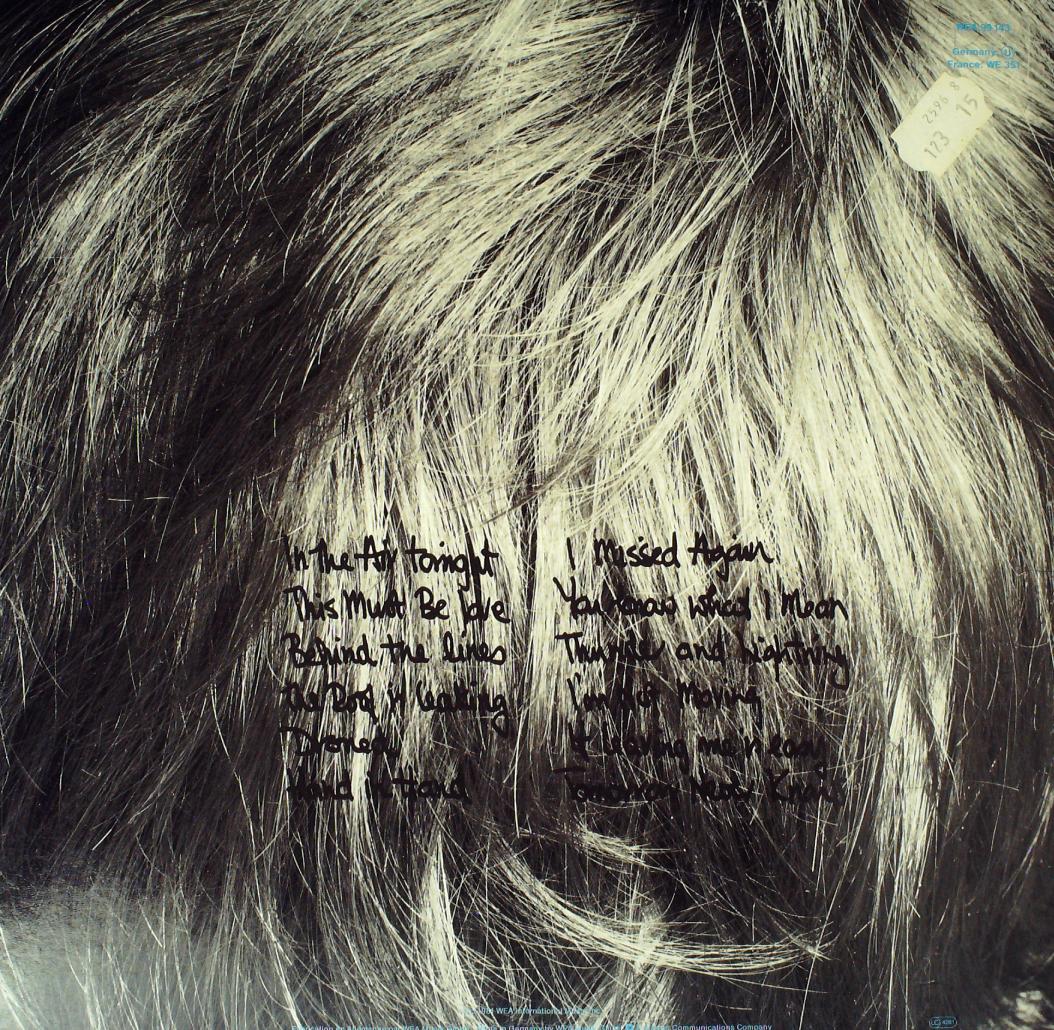 WEA 99 143
Germany: (U)
France: WE 351
2596 8
123 15
In the Air tonight
This Must Be love
Behind the lines
the Roof is leaking
Droned
Hand in Hand
I Missed Again
You Know what I Mean
Thunder and Lightning
I'm Not Moving
If leaving me is easy
Tomorrow Never Knows
1981 WEA International
Communications Company